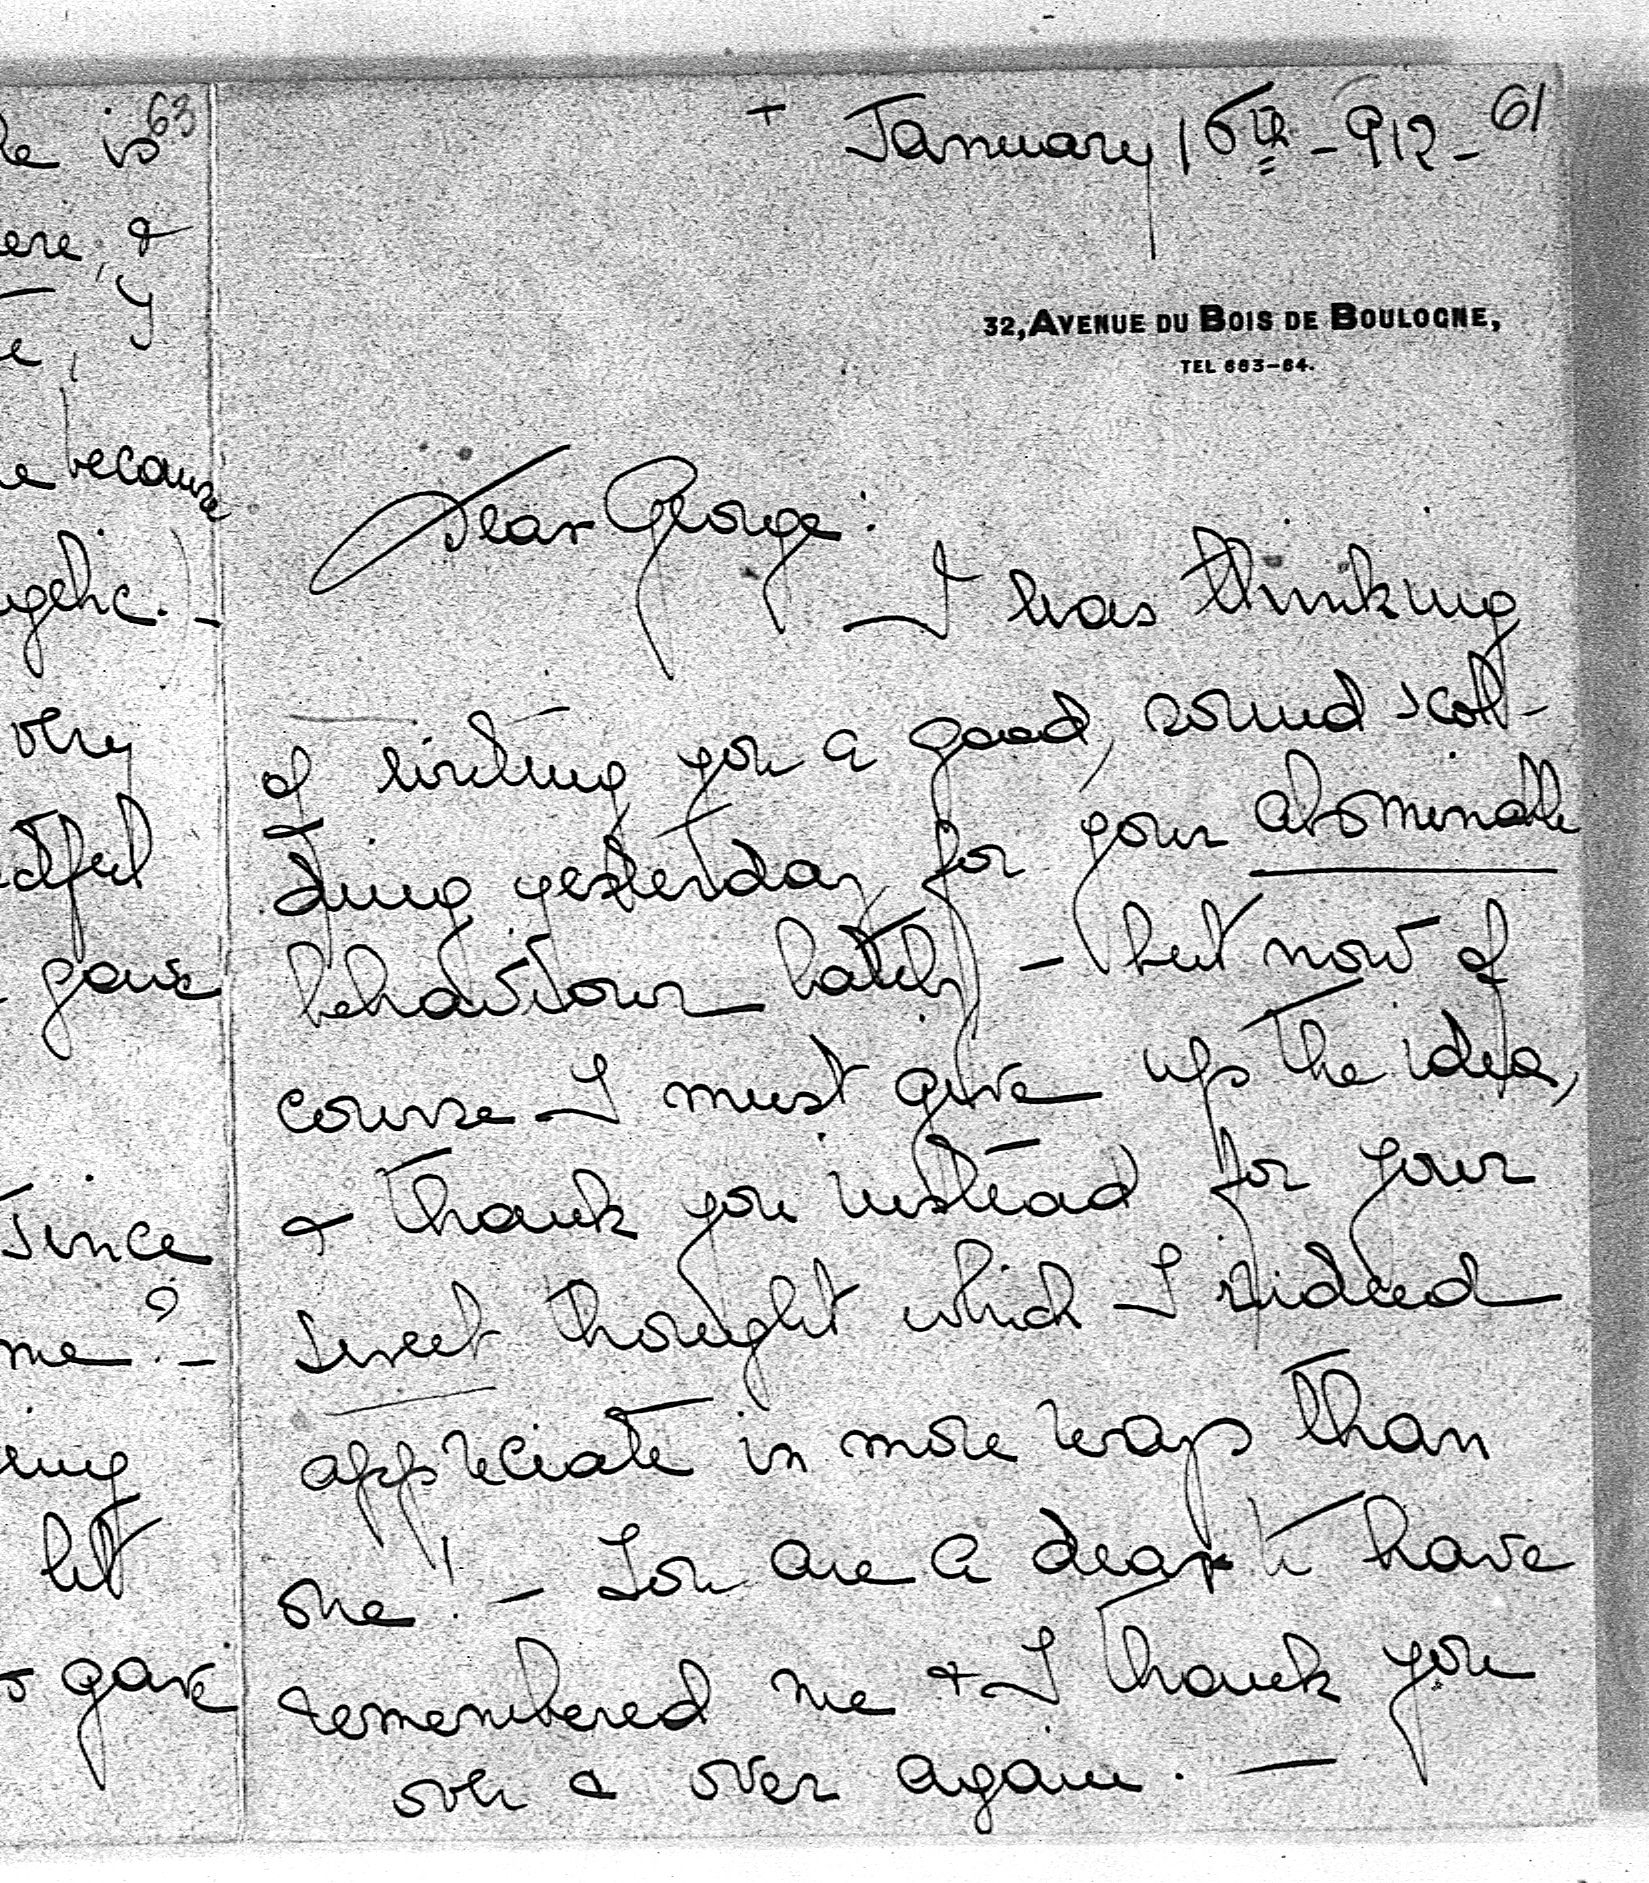 63
is
ere, &
y
e,
because
gelic. -
very
dful
gave
Since
me? -
let
gave
+ January 16th - 912 - 61
32, AVENUE DU BOIS DE BOULOGNE,
TEL 663-64.
Dear George:
I was thinking
of writing you a good, sound scol-
ding yesterday for your abominable
behaviour lately - but now of
course I must give up the idea,
& thank you instead for your
sweet thought which I indeed
appreciate in more ways than
one! - You are a dear to have
remembered me & I thank you
over & over again. -